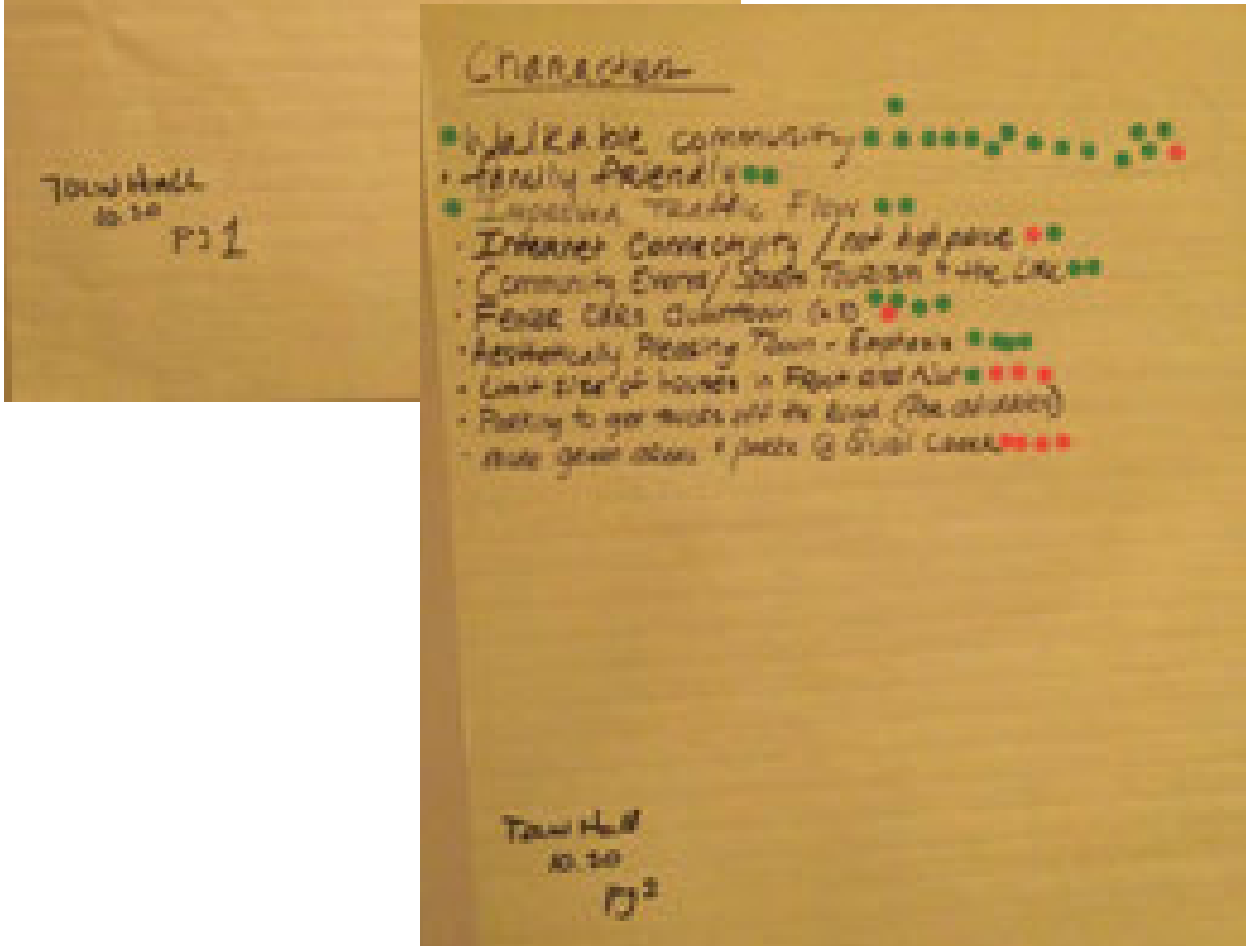 Town Hall
10.20
pg 1
Character
Walkable community
• Family Friendly
Improved Traffic Flow
• Internet Connectivity / not high
• Community Events / Tourism + the Lake
• Fewer Cars Downtown
• Aesthetically Pleasing Town - Emphasis
• Limit size of houses in Front and
• Parking to get trucks off the Road
green @ Quail
Town Hall
10.20
pg 2